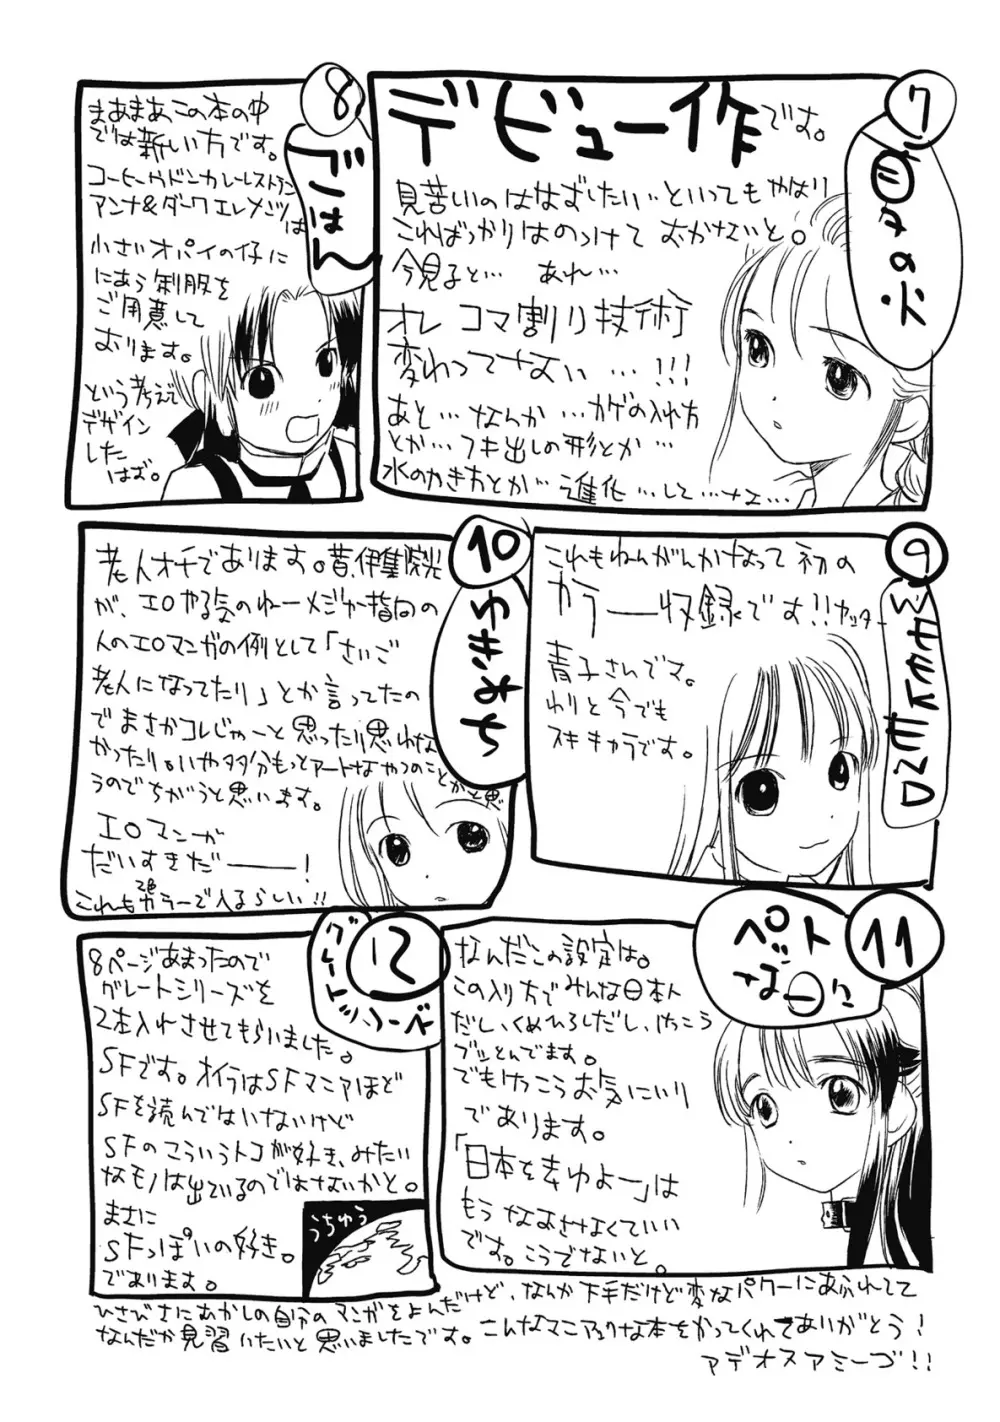 7
夏の火
デビュー作です。
見苦いのははずしたい…といってもやはり
こればっかりはのっけておかないと。
今見ると… あれ…
オレ コマ割り技術
変わってない…!!!
あと…なんか…カゲの入れ方
とか…フキ出しの形とか…
水のかき方とか…進化…して…な…
8
ごはん
まあまあこの本の中
では新しい方です。
コーヒーやドンカレーレストラン
アンナ&ダークエレメンツは
小さいオパイの仔に
にあう制服を
ご用意して
おります。
という考えで
デザイン
した
はず。
9
WEEKEND
これもねんがんかなって初の
カラー収録です!!ヤッター
青子さんでマ。
わりと今でも
スキキャラです。
10
ゆきおち
老人オチであります。昔、伊集院光
が、エロやる気のねーメジャー指向の
人のエロマンガの例として「さいご
老人になってたり」とか言ってたの
でまさかコレじゃーと思ったり思わな
かったり。いや多分もっとアートなやつのことかと思
うのでちがうと思います。
エロマンガ
だいすきだ――!
これも2色カラーで入るらしい!!
11
ペット
な日に
なんだこの設定は。
この入り方でみんな日本人
だし、くめひろしだし、けっこう
ブッとんでます。
でもけっこうお気にいり
であります。
「日本を幸ゆよー」は
もうなおさなくていい
です。こうでないと。
12
8ページあまったので
グレートシリーズを
2本入れさせてもらいました。
SFです。オイラはSFマニアほど
SFを読んではいないけど
SFのこういうトコが好き、みたい
なモノは出ているのではないかと。
まさに
SFっぽいの好き。
であります。
うちゅう
ひさびさにむかしの自分のマンガをよんだけど、なんか下手だけど変なパワーにあふれてて
なんだか見習いたいと思いましたです。こんなマニアックな本をかってくれてありがとう!
アデオスアミーゴ!!